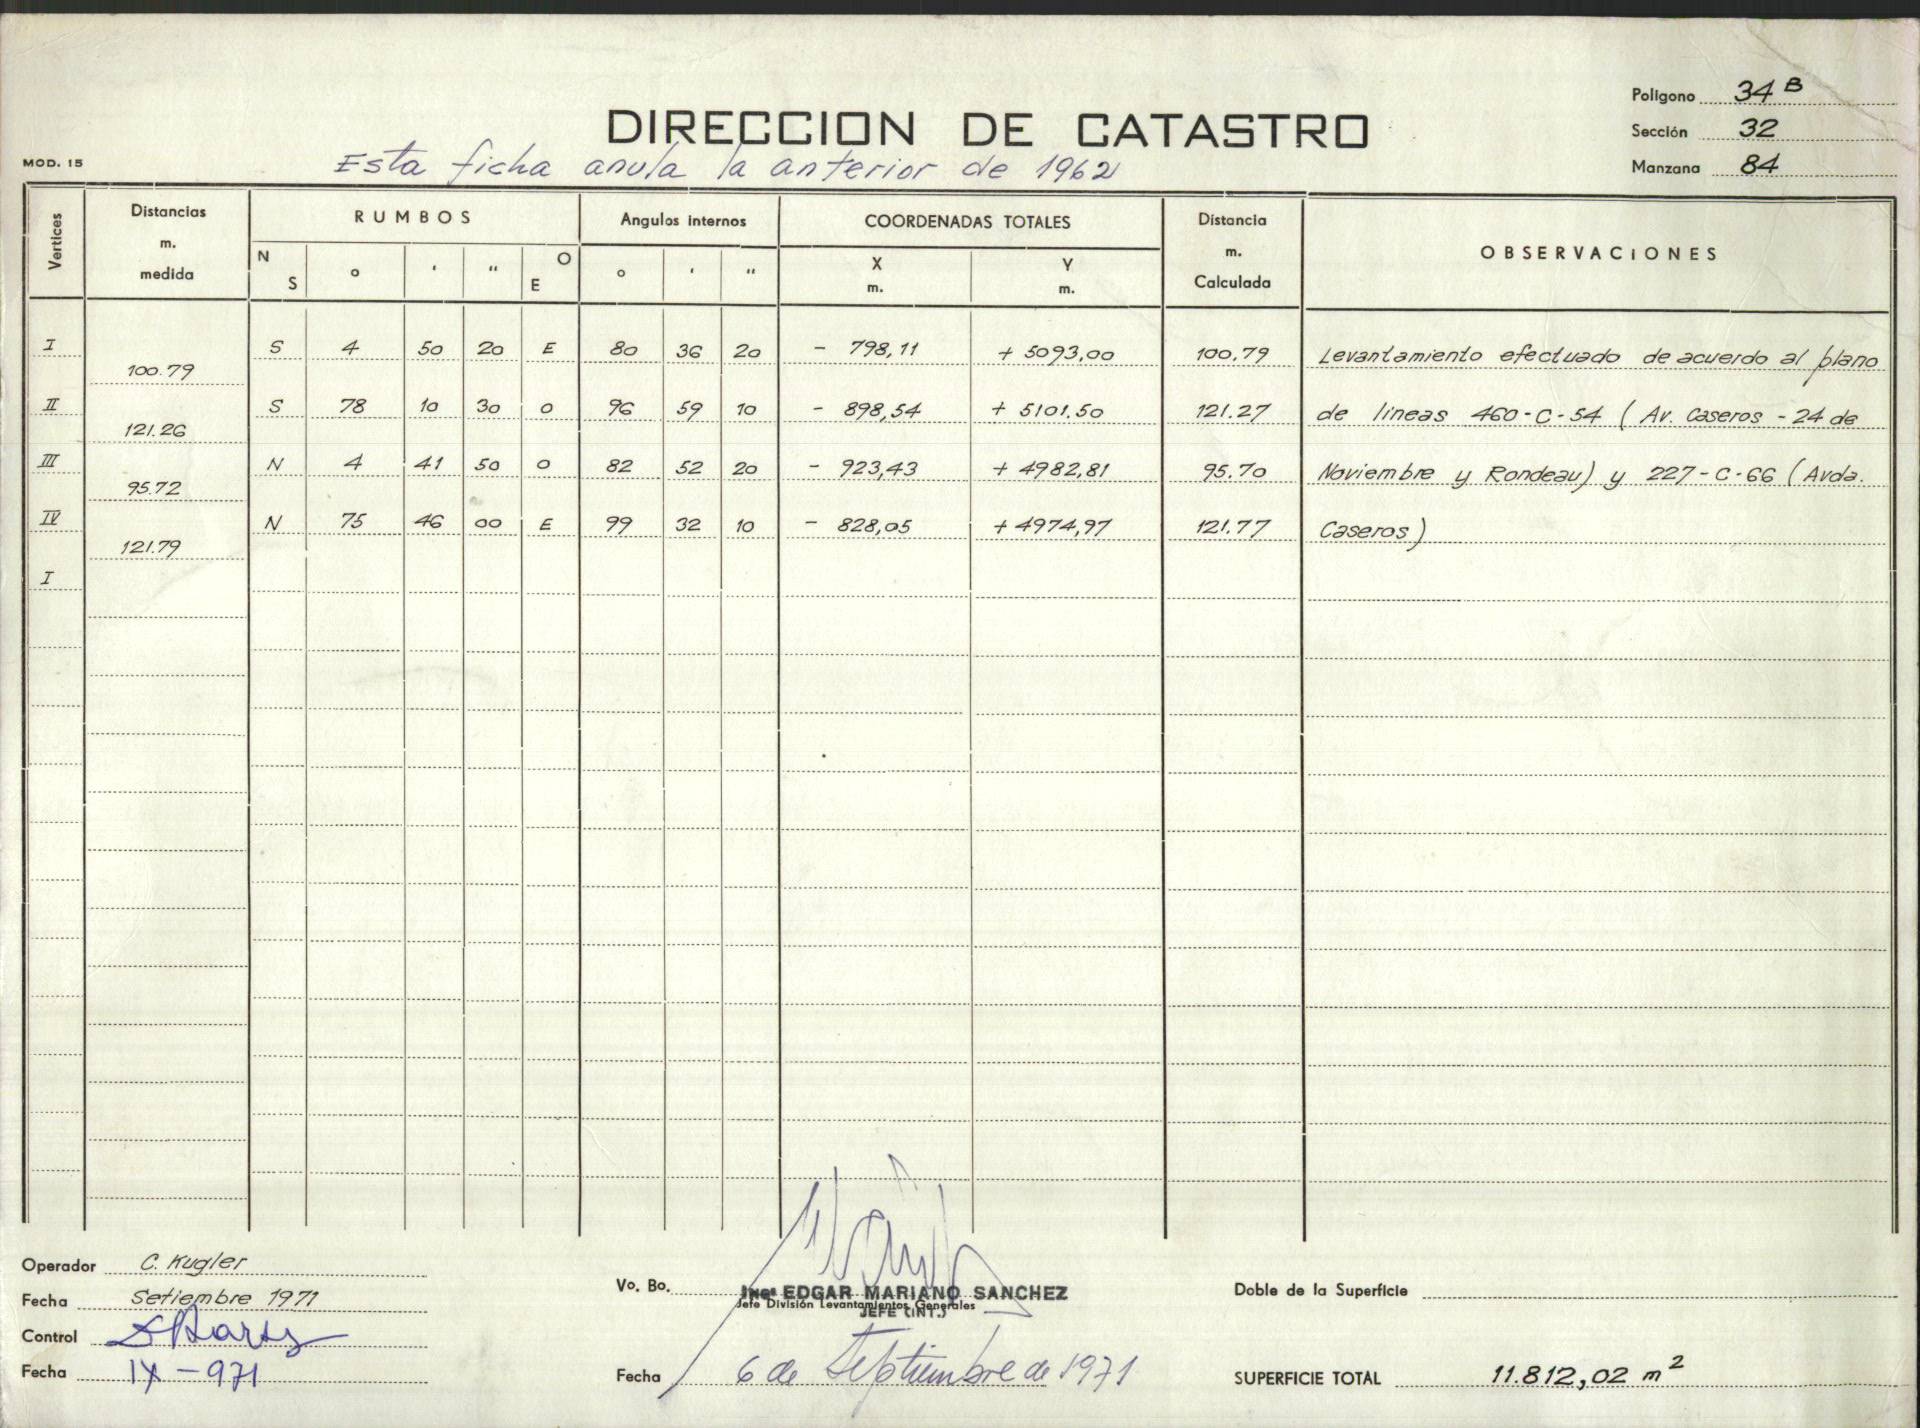 Polígono 34 B
DIRECCION DE CATASTRO
Sección 32
MOD. 15
Esta ficha anula la anterior de 1962
Manzana 84
Vertices Distancias m. medida RUMBOS N S ° ' " O E Angulos internos ° ' " COORDENADAS TOTALES X m. Y m. Distancia m. Calculada OBSERVACIONES
I S 4 50 20 E 80 36 20 - 798,11 + 5093,00 100.79 Levantamiento efectuado de acuerdo al plano
100.79
II S 78 10 30 O 96 59 10 - 898,54 + 5101.50 121.27 de lineas 460-C-54 (Av. Caseros - 24 de
121.26
III N 4 41 50 O 82 52 20 - 923,43 + 4982,81 95.70 Noviembre y Rondeau) y 227-C-66 (Avda.
95.72
IV N 75 46 00 E 99 32 10 - 828,05 + 4974,97 121.77 Caseros)
121.79
I
Operador C. Kugler
Fecha Setiembre 1971
Control
Fecha IX-971
Vo. Bo. Ing° EDGAR MARIANO SANCHEZ
Jefe División Levantamientos Generales
JEFE (INT.)
Fecha 6 de Septiembre de 1971
Doble de la Superficie
SUPERFICIE TOTAL 11.812,02 m2